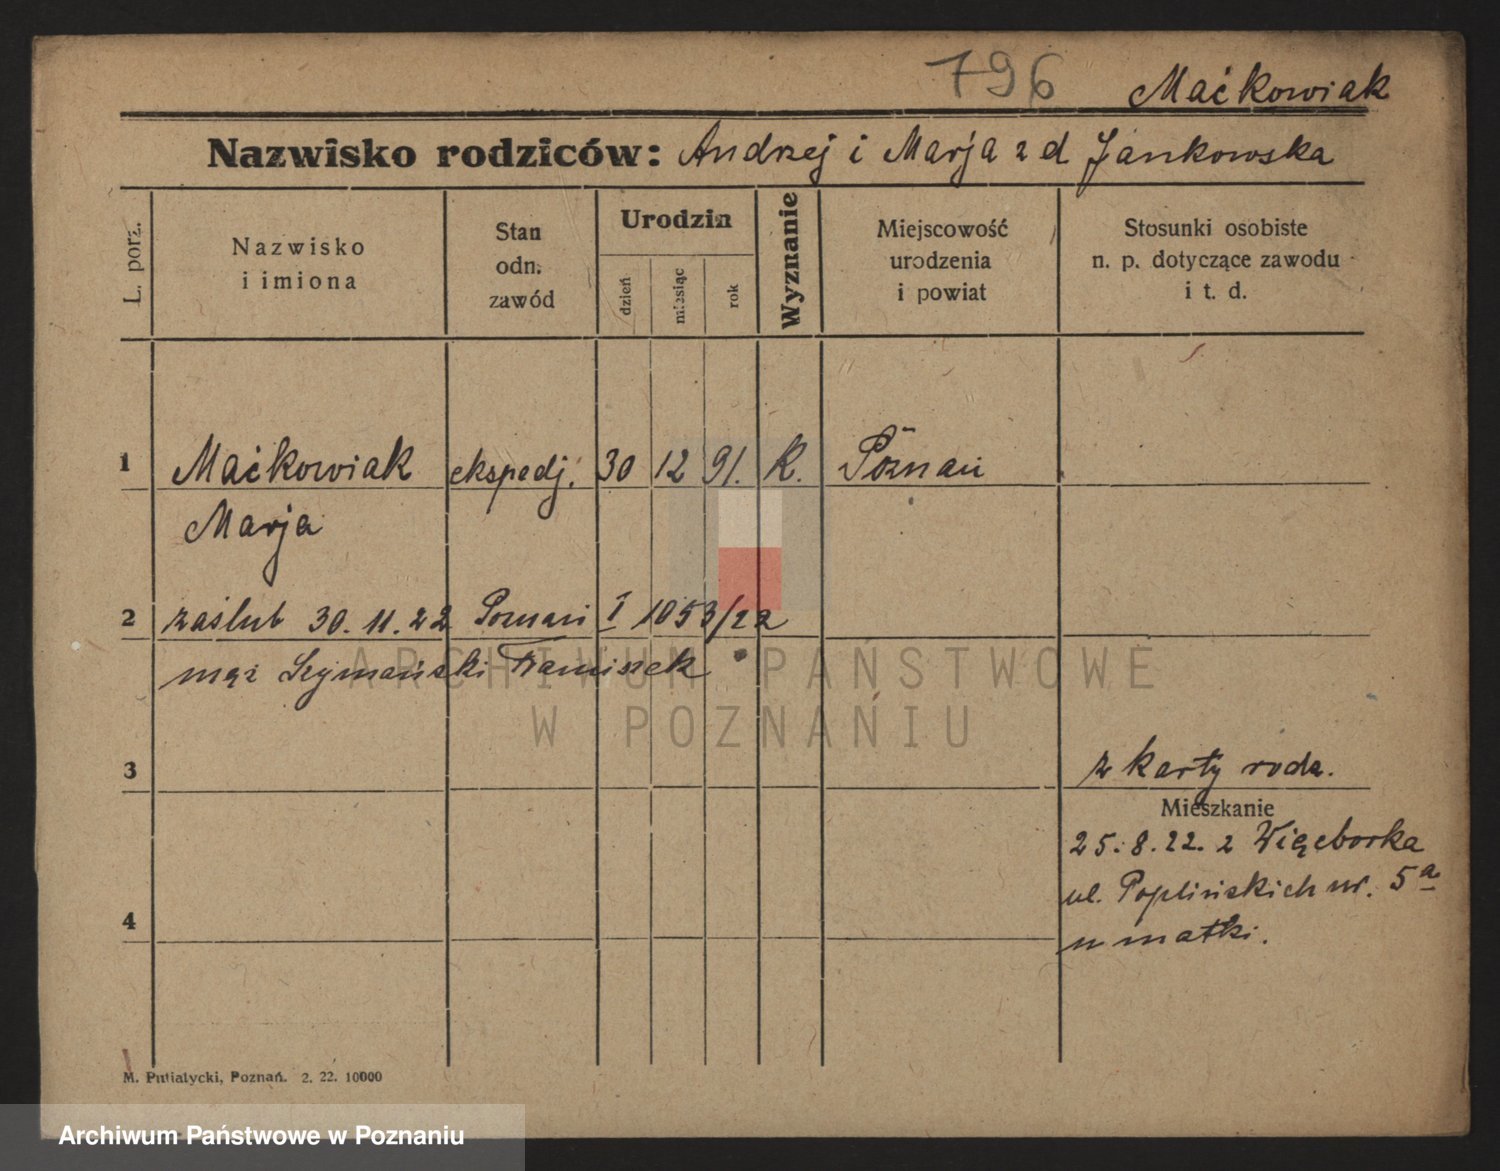 796 Maćkowiak
Nazwisko rodziców: Andrzej i Marja z d Jankowska
L. porz.
Nazwisko
i imiona
Stan
odn.
zawód
Urodzin
dzień
miesiąc
rok
Wyznanie
Miejscowość
urodzenia
i powiat
Stosunki osobiste
n. p. dotyczące zawodu
i t. d.
1 Maćkowiak ekspedj. 30 12 91. K. Poznań
Marja
2 zaślub 30.11.22 Poznań I 1053/22
mąż Szymański Franciszek
ARCHIWUM PAŃSTWOWE
W POZNANIU
3 z karty rodz.
Mieszkanie
25.8.22. z Więcborka
ul. Poplińskich nr. 5a
4 u matki.
M. Putiatycki, Poznań. 2. 22. 10000
Archiwum Państwowe w Poznaniu